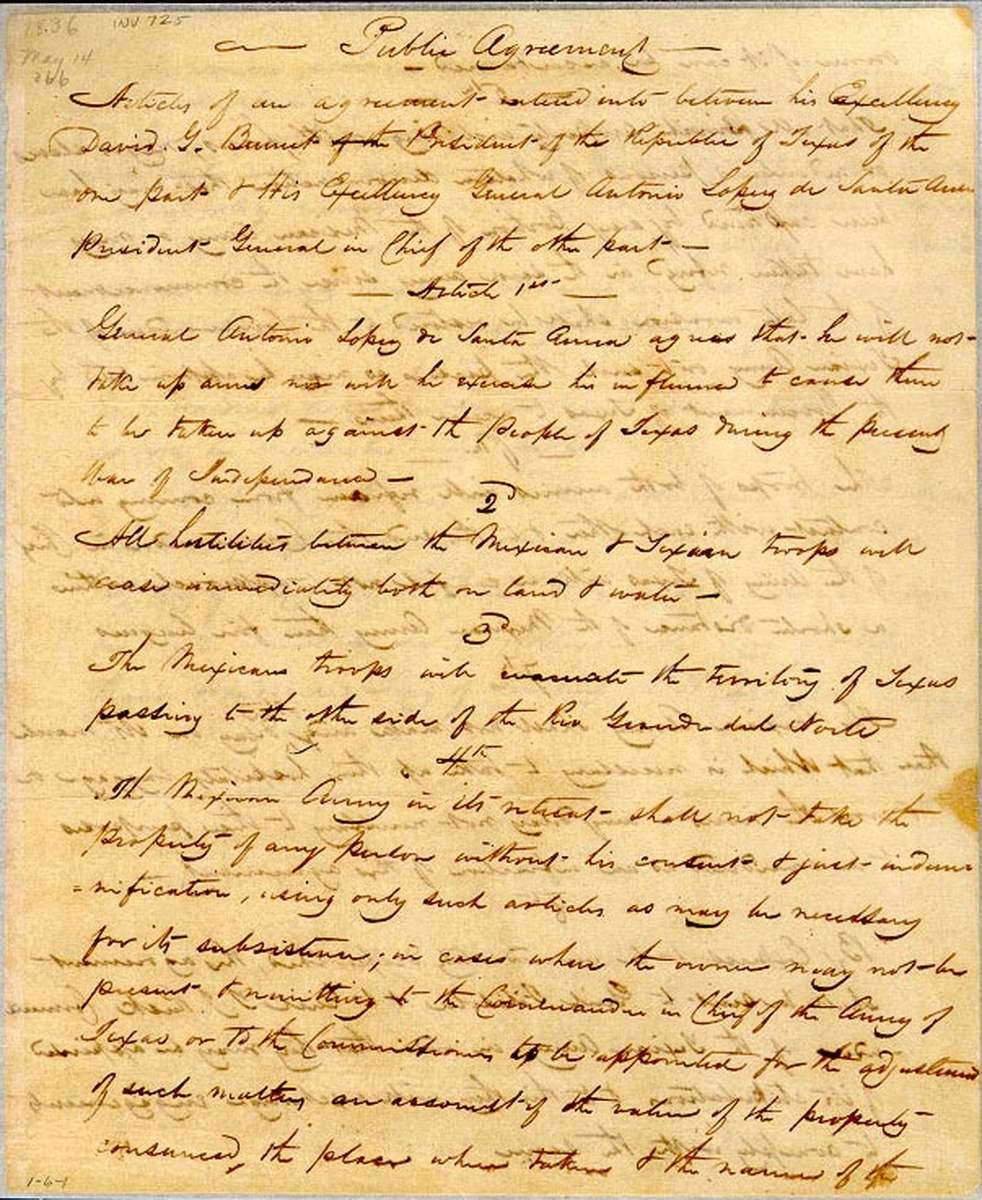 1836 INV 725
May 14
266
Public Agreement
Articles of an agreement entered into between his Excellency
David. G. Burnet of the President of the Republic of Texas of the
one part & His Excellency General Antonio Lopez de Santa Anna
President General in Chief of the other part
Article 1st
General Antonio Lopez de Santa Anna agrees that he will not
take up arms nor will he exercise his influence to cause them
to be taken up against the people of Texas during the present
War of Independence
2d
All hostilities between the Mexican & Texian troops will
cease immediately both on land & water
3d
The Mexican troops will evacuate the territory of Texas
passing to the other side of the Rio Grande del Norte
4th
The Mexican Army in its retreat shall not take the
property of any person without his consent & just indem
=nification, using only such articles as may be necessary
for its subsistence; in cases where the owner may not be
present & remitting to the Commander in Chief of the Army of
Texas or to the Commissioners to be appointed for the adjustment
of such matters an account of the value of the property
consumed, the place where taken & the name of the
1-6-1